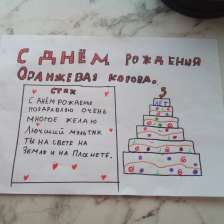 С ДНЁМ РОЖДЕНИЯ
ОРАНЖЕВАЯ КОРОВА.
СТИХ
С ДНЁМ РОЖДЕНИЯ
ПОЗДРАВЛЯЮ ОЧЕНЬ
МНОГОЕ ЖЕЛАЮ
ЛЮЧШИЙ МУЛЬТИК
ТЫ НА СВЕТЕ НА
ЗЕМЛЕ И НА ПЛОНЕТЕ.
5
ЛЕТ